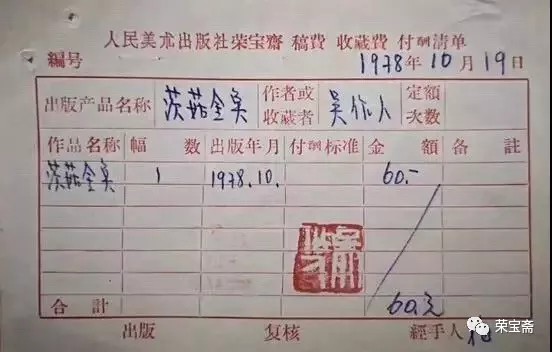 人民美朮出版社荣宝齋 稿費 收藏費 付酬清单
編号 1978年10月19日
出版产品名称 茨菇金魚 作者或收藏者 吴作人 定額次数
作品名称 幅数 出版年月 付酬标准 金額 备註
茨菇金魚 1 1978.10. 60.-
合計 60元
出版 复核 經手人
荣宝斋